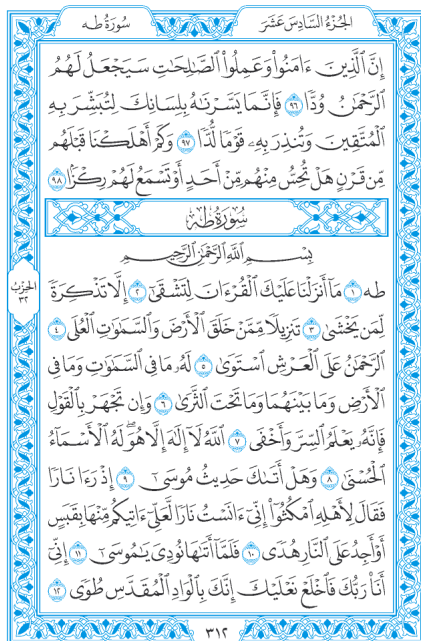 سُورَةُ طه
الجُزْءُ السَّادِسَ عَشَرَ
إِنَّ ٱلَّذِينَ ءَامَنُواْ وَعَمِلُواْ ٱلصَّٰلِحَٰتِ سَيَجْعَلُ لَهُمُ
ٱلرَّحْمَٰنُ وُدًّا ٩٦ فَإِنَّمَا يَسَّرْنَٰهُ بِلِسَانِكَ لِتُبَشِّرَ بِهِ
ٱلْمُتَّقِينَ وَتُنذِرَ بِهِۦ قَوْمًا لُّدًّا ٩٧ وَكَمْ أَهْلَكْنَا قَبْلَهُم
مِّن قَرْنٍ هَلْ تُحِسُّ مِنْهُم مِّنْ أَحَدٍ أَوْ تَسْمَعُ لَهُمْ رِكْزًۢا ٩٨
سُورَةُ طه
بِسْمِ ٱللَّهِ ٱلرَّحْمَٰنِ ٱلرَّحِيمِ
طه ١ مَآ أَنزَلْنَا عَلَيْكَ ٱلْقُرْءَانَ لِتَشْقَىٰٓ ٢ إِلَّا تَذْكِرَةً
لِّمَن يَخْشَىٰ ٣ تَنزِيلًا مِّمَّنْ خَلَقَ ٱلْأَرْضَ وَٱلسَّمَٰوَٰتِ ٱلْعُلَى ٤
ٱلرَّحْمَٰنُ عَلَى ٱلْعَرْشِ ٱسْتَوَىٰ ٥ لَهُۥ مَا فِي ٱلسَّمَٰوَٰتِ وَمَا فِي
ٱلْأَرْضِ وَمَا بَيْنَهُمَا وَمَا تَحْتَ ٱلثَّرَىٰ ٦ وَإِن تَجْهَرْ بِٱلْقَوْلِ
فَإِنَّهُۥ يَعْلَمُ ٱلسِّرَّ وَأَخْفَى ٧ ٱللَّهُ لَآ إِلَٰهَ إِلَّا هُوَۖ لَهُ ٱلْأَسْمَآءُ
ٱلْحُسْنَىٰ ٨ وَهَلْ أَتَىٰكَ حَدِيثُ مُوسَىٰٓ ٩ إِذْ رَءَا نَارًا
فَقَالَ لِأَهْلِهِ ٱمْكُثُوٓاْ إِنِّيٓ ءَانَسْتُ نَارًا لَّعَلِّيٓ ءَاتِيكُم مِّنْهَا بِقَبَسٍ
أَوْ أَجِدُ عَلَى ٱلنَّارِ هُدًى ١٠ فَلَمَّآ أَتَىٰهَا نُودِيَ يَٰمُوسَىٰٓ ١١ إِنِّيٓ
أَنَا۠ رَبُّكَ فَٱخْلَعْ نَعْلَيْكَ إِنَّكَ بِٱلْوَادِ ٱلْمُقَدَّسِ طُوًى ١٢
الحِزْبُ
٣٢
٣١٢